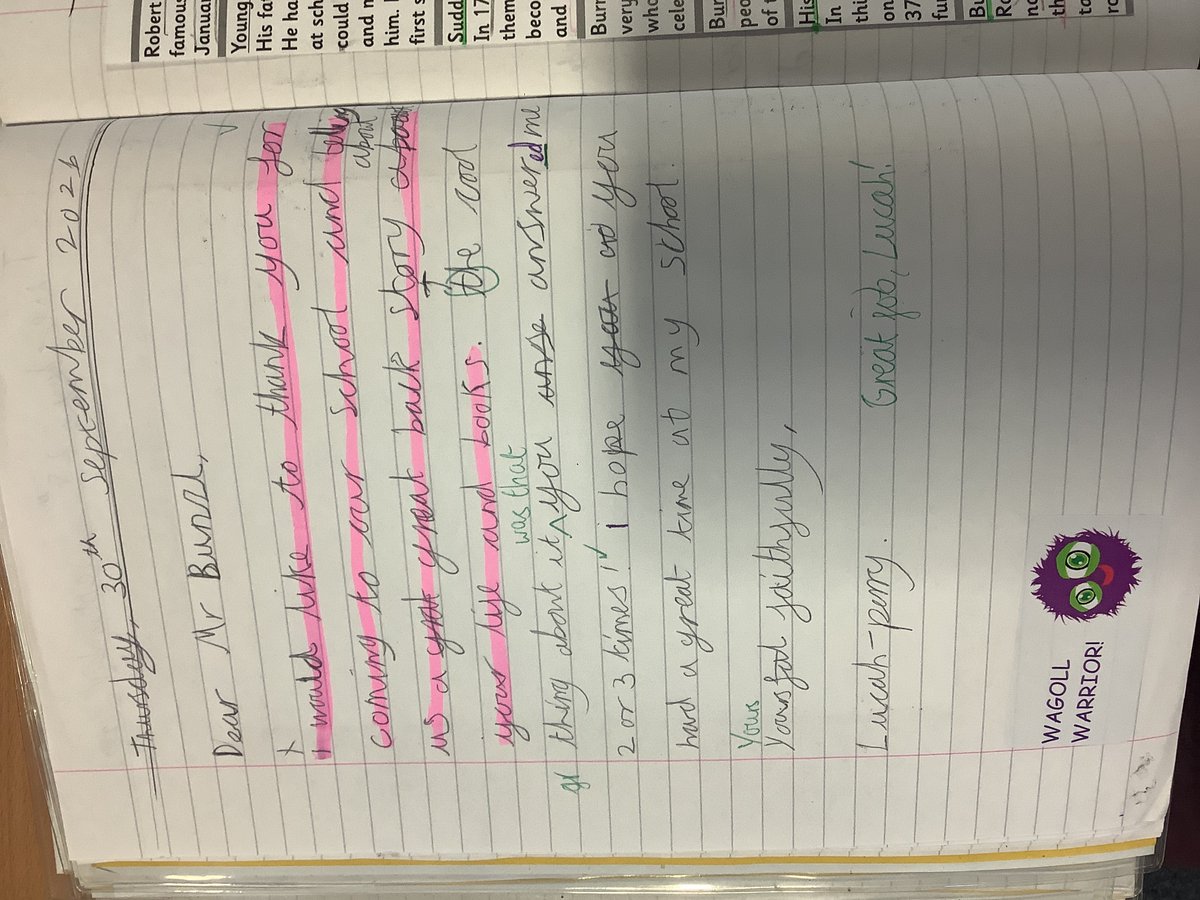 Thursday, 30th September 2026
Dear Mr Bunzl,
I would like to thank you for
coming to our school and telling
about
us a great great back story about
your life and books. the cool
was that
thing about it you answered me
2 or 3 times! I hope your ad you
hard a great time at my school.
Yours
faithfully,
Lucah-perry.
Great job, Lucah!
WAGOLL
WARRIOR!
Robert
famous
Januar
Young
His fat
He ha
at sch
could
and m
him.
first s
Sudd
In 17
them
beco
and
Burn
very
who
cele
Bur
peo
of t
His
In
thi
on
37
fun
Bu
Ro
no
th
ta
ro